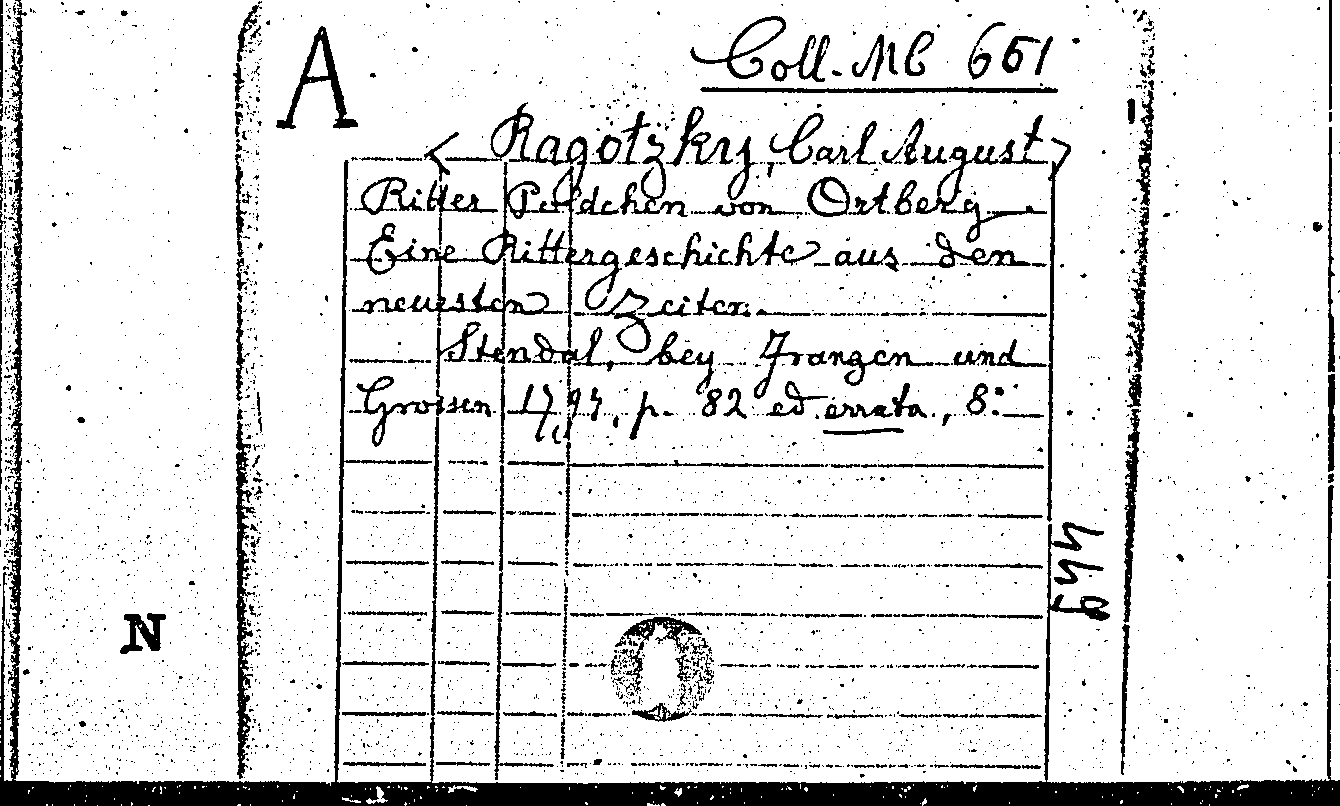 A
Coll. MC 651
< Ragotzky, Carl August >
Ritter Poldchen von Ortberg.
Eine Rittergeschichte aus den
neuesten Zeiten.
Stendal, bey Franzen und
Grossen 1797, p. 82 ed errata, 8.°
N